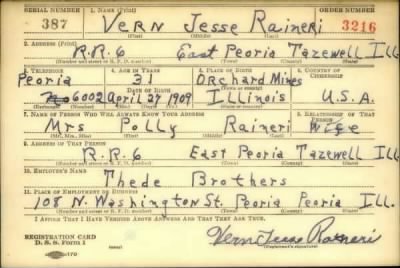 SERIAL NUMBER 1. NAME (Print) ORDER NUMBER
387 Vern Jesse Raineri 3216
(First) (Middle) (Last)
2. ADDRESS (Print)
R.R.6 East Peoria Tazewell Ill.
(Number and street or R. F. D. number) (Town) (County) (State)
3. TELEPHONE 4. AGE IN YEARS 5. PLACE OF BIRTH 6. COUNTRY OF CITIZENSHIP
Peoria 31 Orchard Mines
DATE OF BIRTH
6002 April 27 1909 Illinois U.S.A.
(Exchange) (Number) (Mo.) (Day) (Yr.) (State or country)
7. NAME OF PERSON WHO WILL ALWAYS KNOW YOUR ADDRESS 8. RELATIONSHIP OF THAT PERSON
Mrs Polly Raineri Wife
(Mr., Mrs., Miss) (First) (Middle) (Last)
9. ADDRESS OF THAT PERSON
R.R.6 East Peoria Tazewell Ill.
(Number and street or R. F. D. number) (Town) (County) (State)
10. EMPLOYER'S NAME
Thede Brothers
11. PLACE OF EMPLOYMENT OR BUSINESS
108 N. Washington St. Peoria Peoria Ill.
(Number and street or R. F. D. number) (Town) (County) (State)
I AFFIRM THAT I HAVE VERIFIED ABOVE ANSWERS AND THAT THEY ARE TRUE.
REGISTRATION CARD
D. S. S. Form 1 Vern Jesse Raineri
(Registrant's signature)